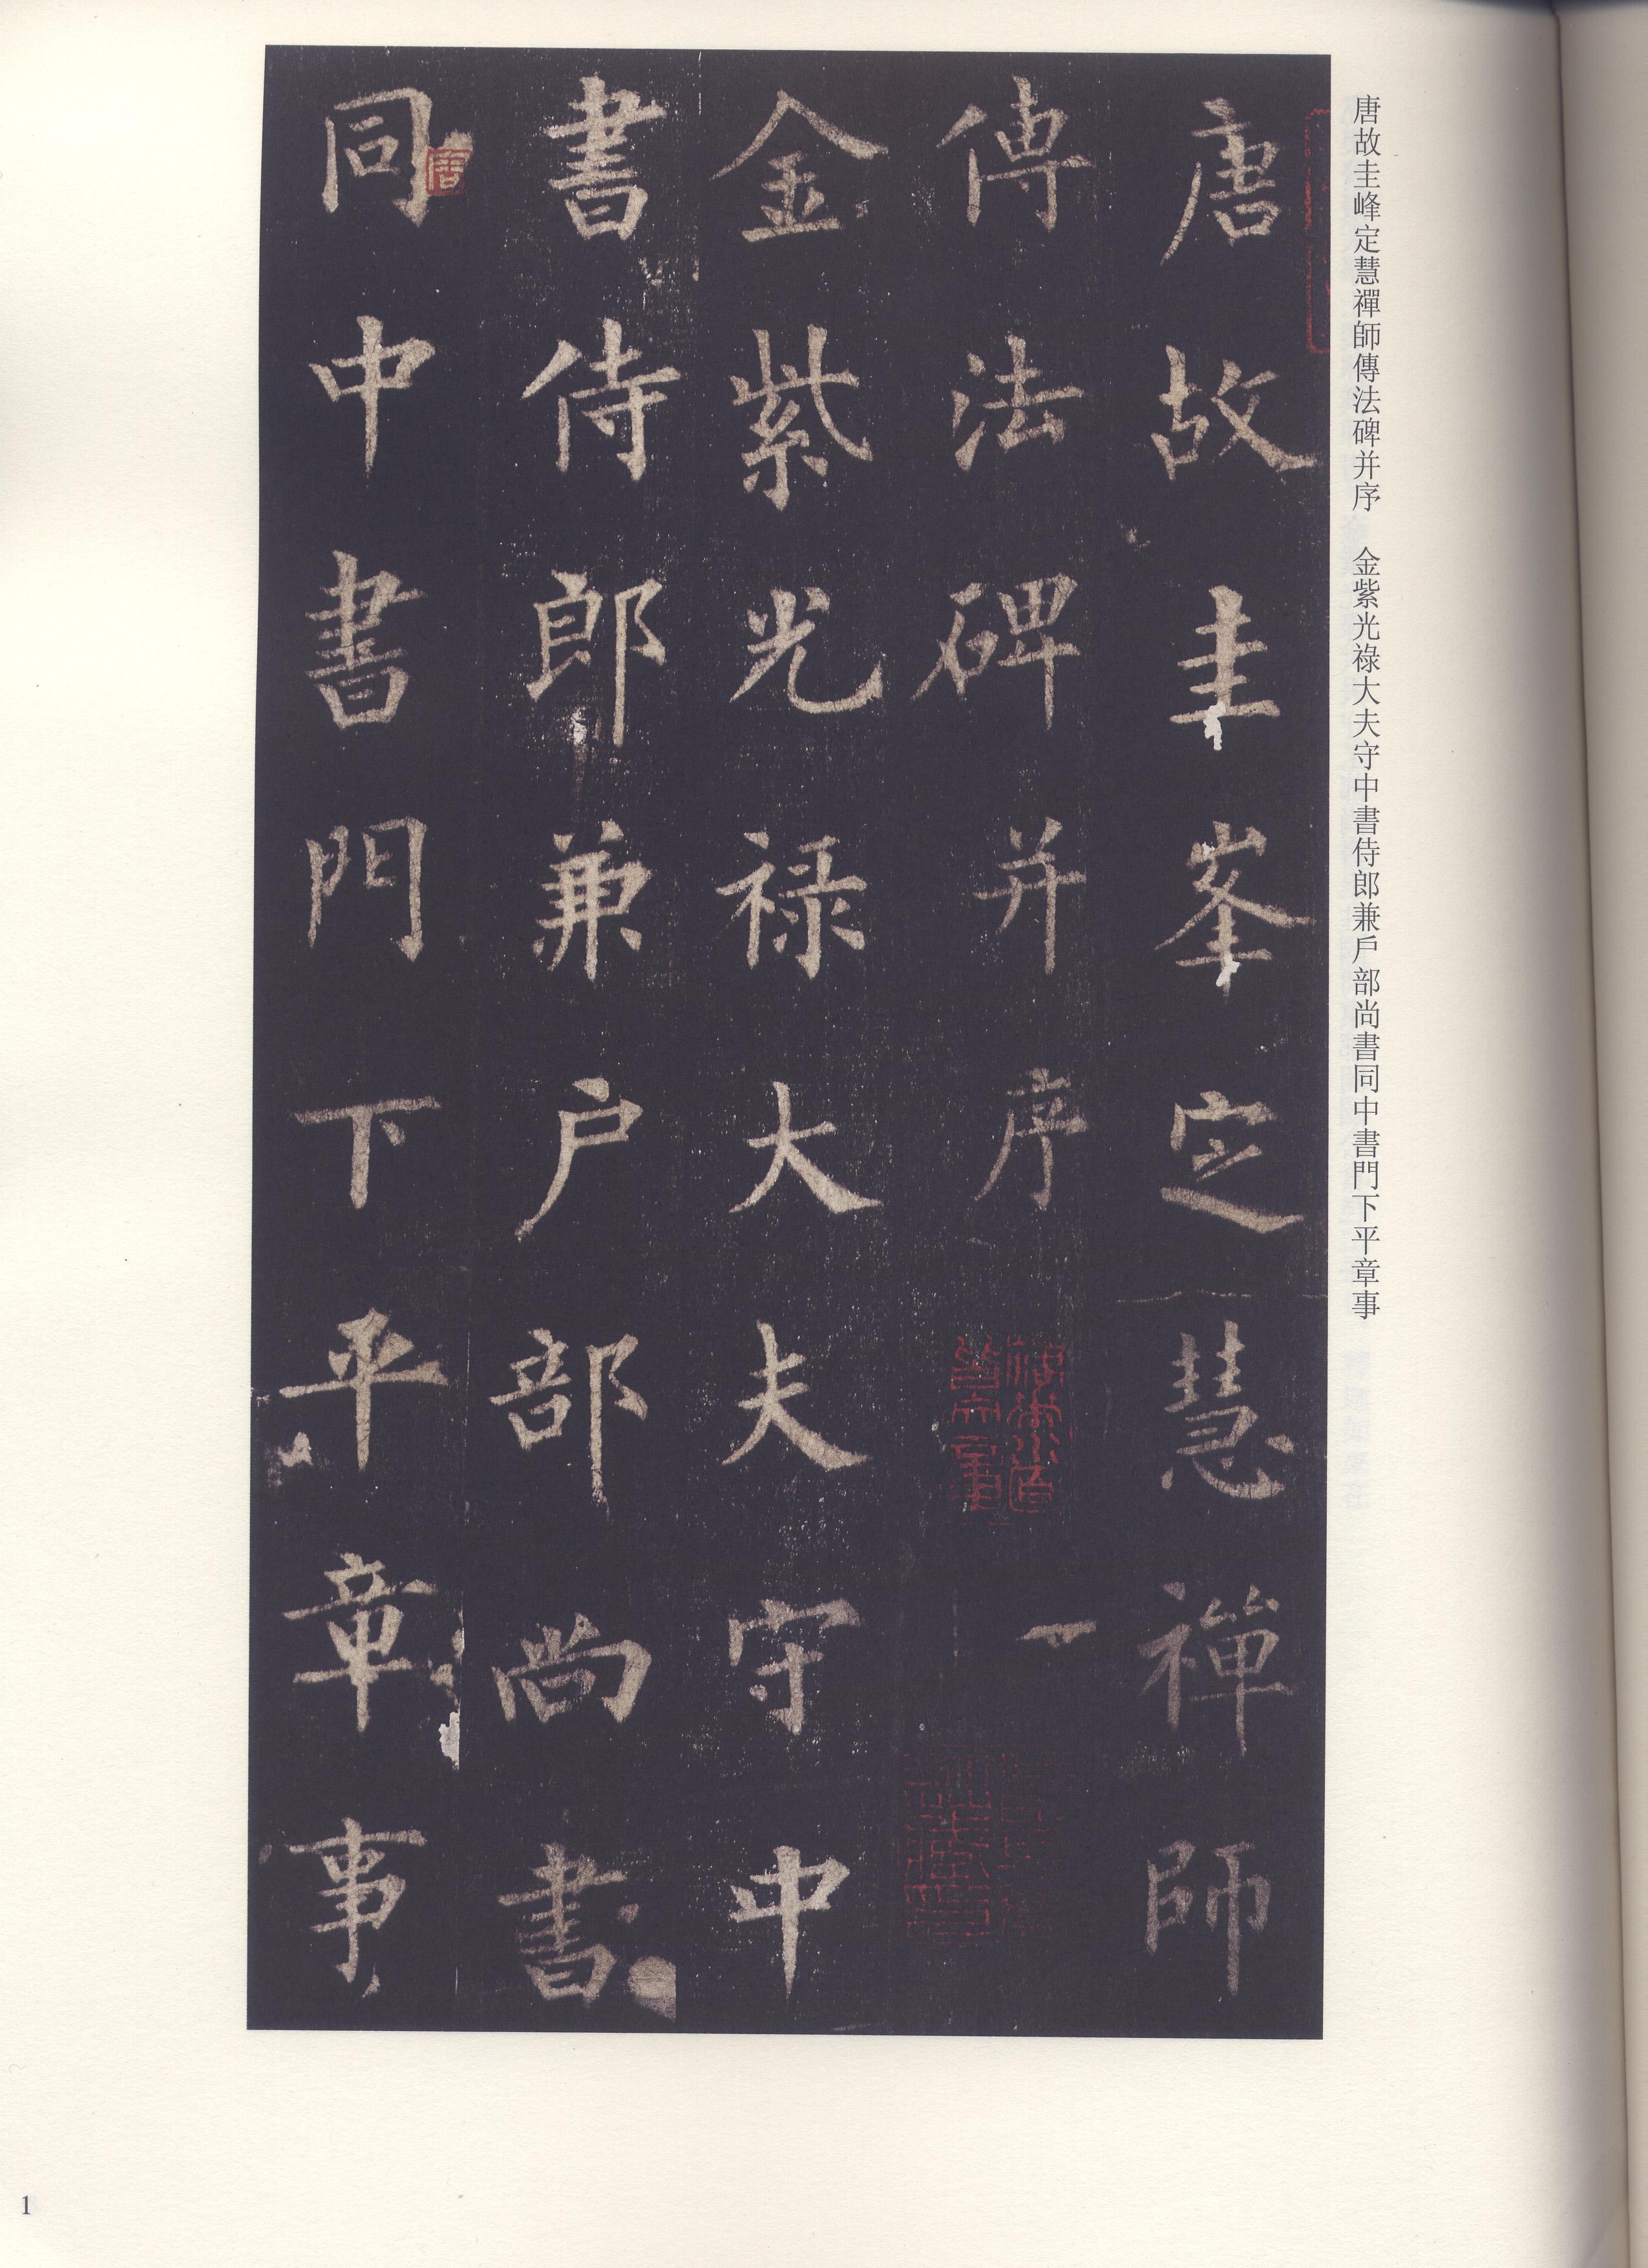 唐故圭峰定慧禪師傳法碑并序　金紫光祿大夫守中書侍郎兼戶部尚書同中書門下平章事
唐故圭峯定慧禪師
傳法碑并序
金紫光祿大夫守中
書侍郎兼户部尚書
同中書門下平章事
1